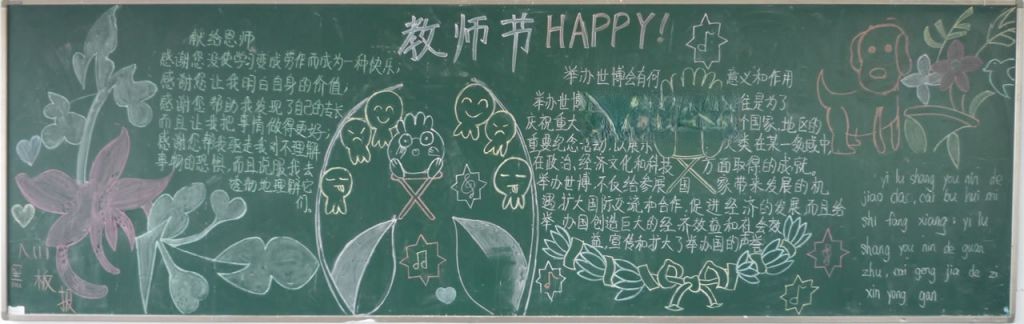 教师节 HAPPY!
献给恩师
感谢您没使学习变成劳作而成为一种快乐,
感谢您让我明白自身的价值,
感谢您帮助我发现了自己的专长
而且让我把事情做得更好,
感谢您帮我驱走我对不理解
事物的恐惧,而且说服我去
逐渐地理解它
们。
举办世博会有何
意义和作用
举办世博
往是为了
庆祝重大
个国家、地区的
重要纪念活动,以展示
人类在某一领域中
在政治、经济文化和科技
方面取得的成就。
举办世博不仅给参展国
家带来发展的机
遇扩大国际交流和合作,促进经济的发展而且给
举办国创造巨大的经济效益和社会效
益,宣传和扩大了举办国的声誉
yi lu shang you nin de
jiao dao, cai bu hui mi
shi fang xiang; yi lu
shang you nin de guan
zhu, cai geng jia de zi
xin yong gan
板
报